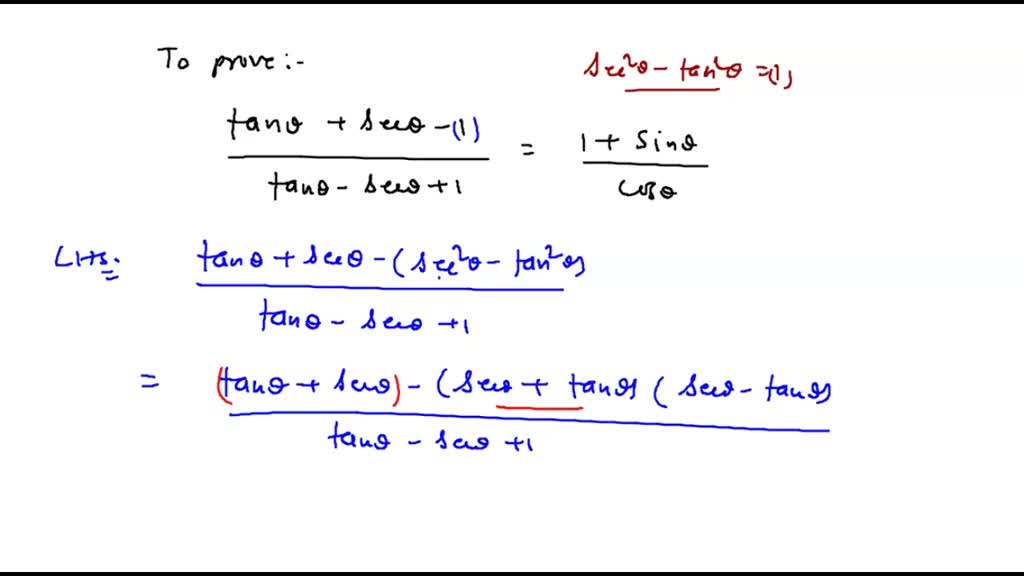 To prove :-
sec²θ - tan²θ = (1)
tanθ + secθ - (1) / tanθ - secθ + 1 = 1 + sinθ / cosθ
LHS. tanθ + secθ - (sec²θ - tan²θ) / tanθ - secθ + 1
= (tanθ + secθ) - (secθ + tanθ) (secθ - tanθ) / tanθ - secθ + 1